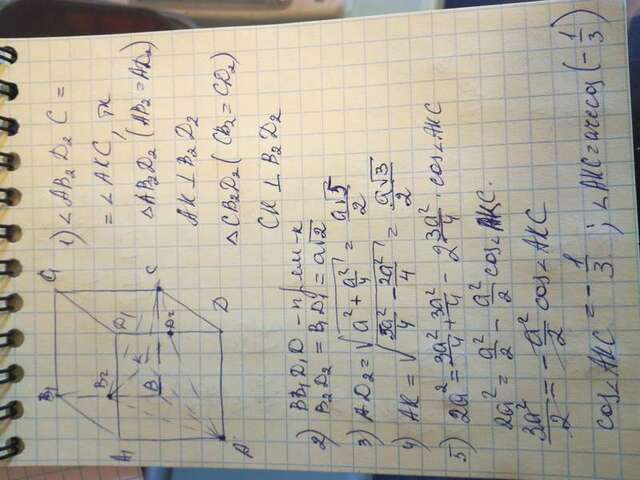 B₁
C₁
A₁
D₁
B₂
K
C
B
D₂
A
D
1) ∠AB₂D₂C =
= ∠AKC, тк
△AB₂D₂ (AB₂=AD₂)
AK ⊥ B₂D₂
△CB₂D₂ (CB₂=CD₂)
CK ⊥ B₂D₂
2) BB₁D₁D - прям-к
B₂D₂ = B₁D₁ = a√2
3) AD₂ = √(a² + a²/4) = a√5/2
4) AK = √(5a²/4 - 2a²/4) = a√3/2
5) 2a² = 3a²/4 + 3a²/4 - 2 3a²/4 · cos∠AKC
2a² = a²/2 - a²/2 cos∠AKC.
3a²/2 = - a²/2 cos∠AKC
cos∠AKC = -1/3 ; ∠AKC = arccos(-1/3)